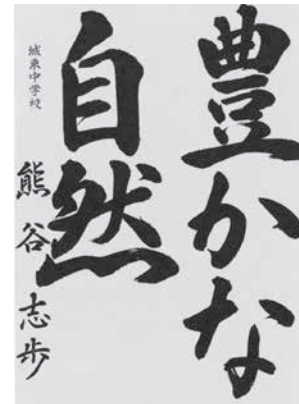 豊かな
自然
城東中学校
熊谷志歩